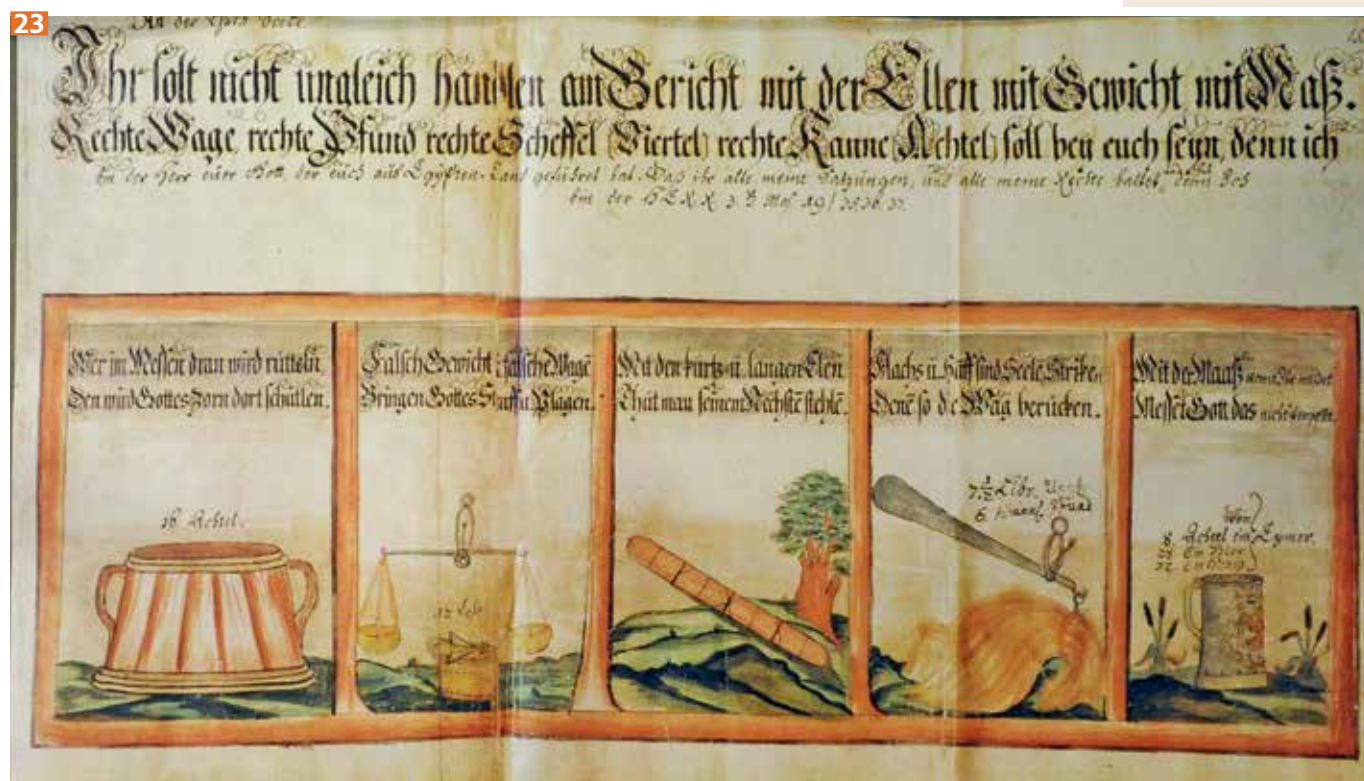 23
An der
Ihr solt nicht ungleich handlen am Gericht mit der Ellen mit Gewicht mit Maß.
Rechte Wage rechte Pfund rechte Scheffel (Viertel) rechte Kanne (Achtel) soll bey euch seyn, denn ich
bin der Herr eure Gott, der euch aus Egypten-Land geführet hat. Daß ihr alle meine Satzungen, und alle meine Rechte haltet, denn Ich
bin der HERR 3. B Mos 19/35.36.37.
Wer im Messen dran wird rütteln,
Den wird Gottes Zorn dort schütlen.
16 Achtel.
Falsch Gewicht falsche Wage
Bringen Gottes Straff u Plagen.
32 Loht
Mit den kurtz u. langen Elen
Thut man seinen Nechste stehle.
Flachs u. Hanff sind Seele Strike,
Dene so die Wag berücken.
7 1/2 Libr.
6.
Mit der Maaß
Messet Gott das nicht
8. Achtel ein Eymer.
32 Ein
32 Ein